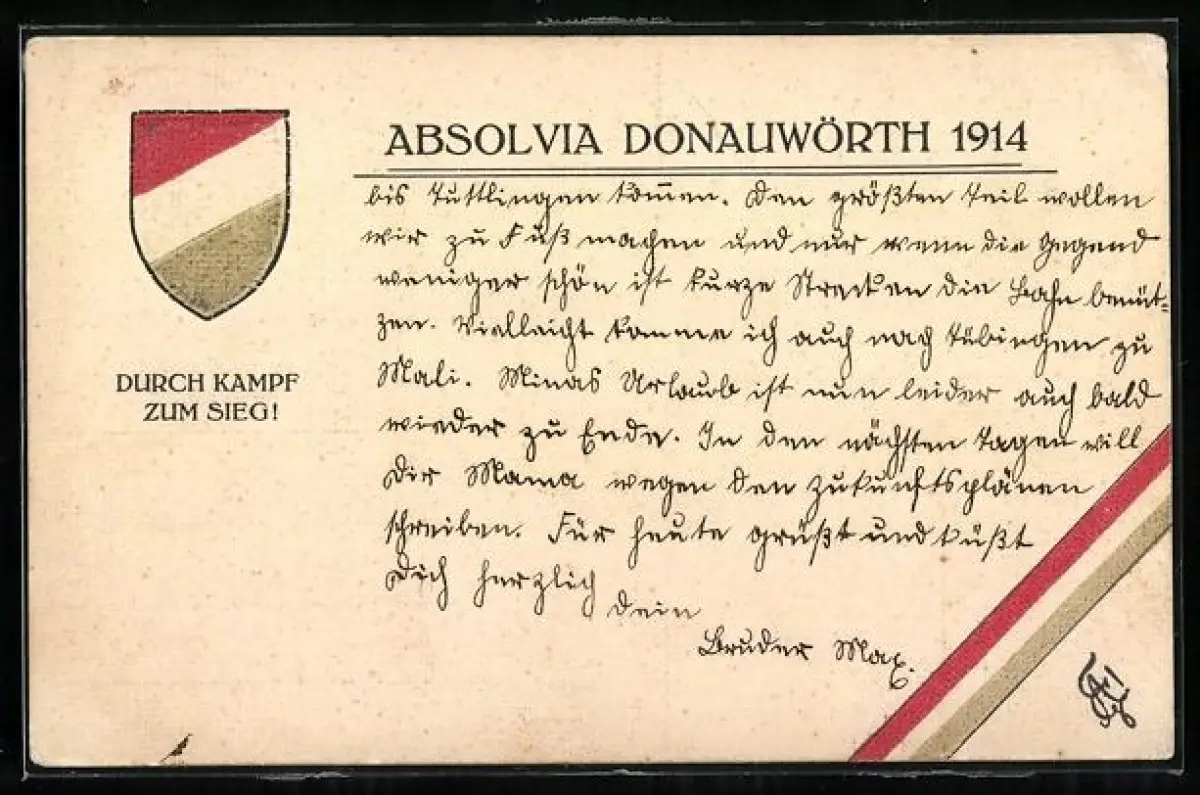 ABSOLVIA DONAUWÖRTH 1914
DURCH KAMPF
ZUM SIEG!
bis Tuttlingen kom̅en. Den größten Teil wollen
wir zu Fuß machen und nur wenn die Gegend
weniger schön ist kurze Strecken die Bahn benüt-
zen. Vielleicht komme ich auch nach Tübingen zu
Mali. Minas Urlaub ist nun leider auch bald
wieder zu Ende. In den nächsten Tagen will
Dir Mama wegen den Zukunftsplänen
schreiben. Für heute grüßt und küßt
Dich herzlich
Dein
Bruder Max.